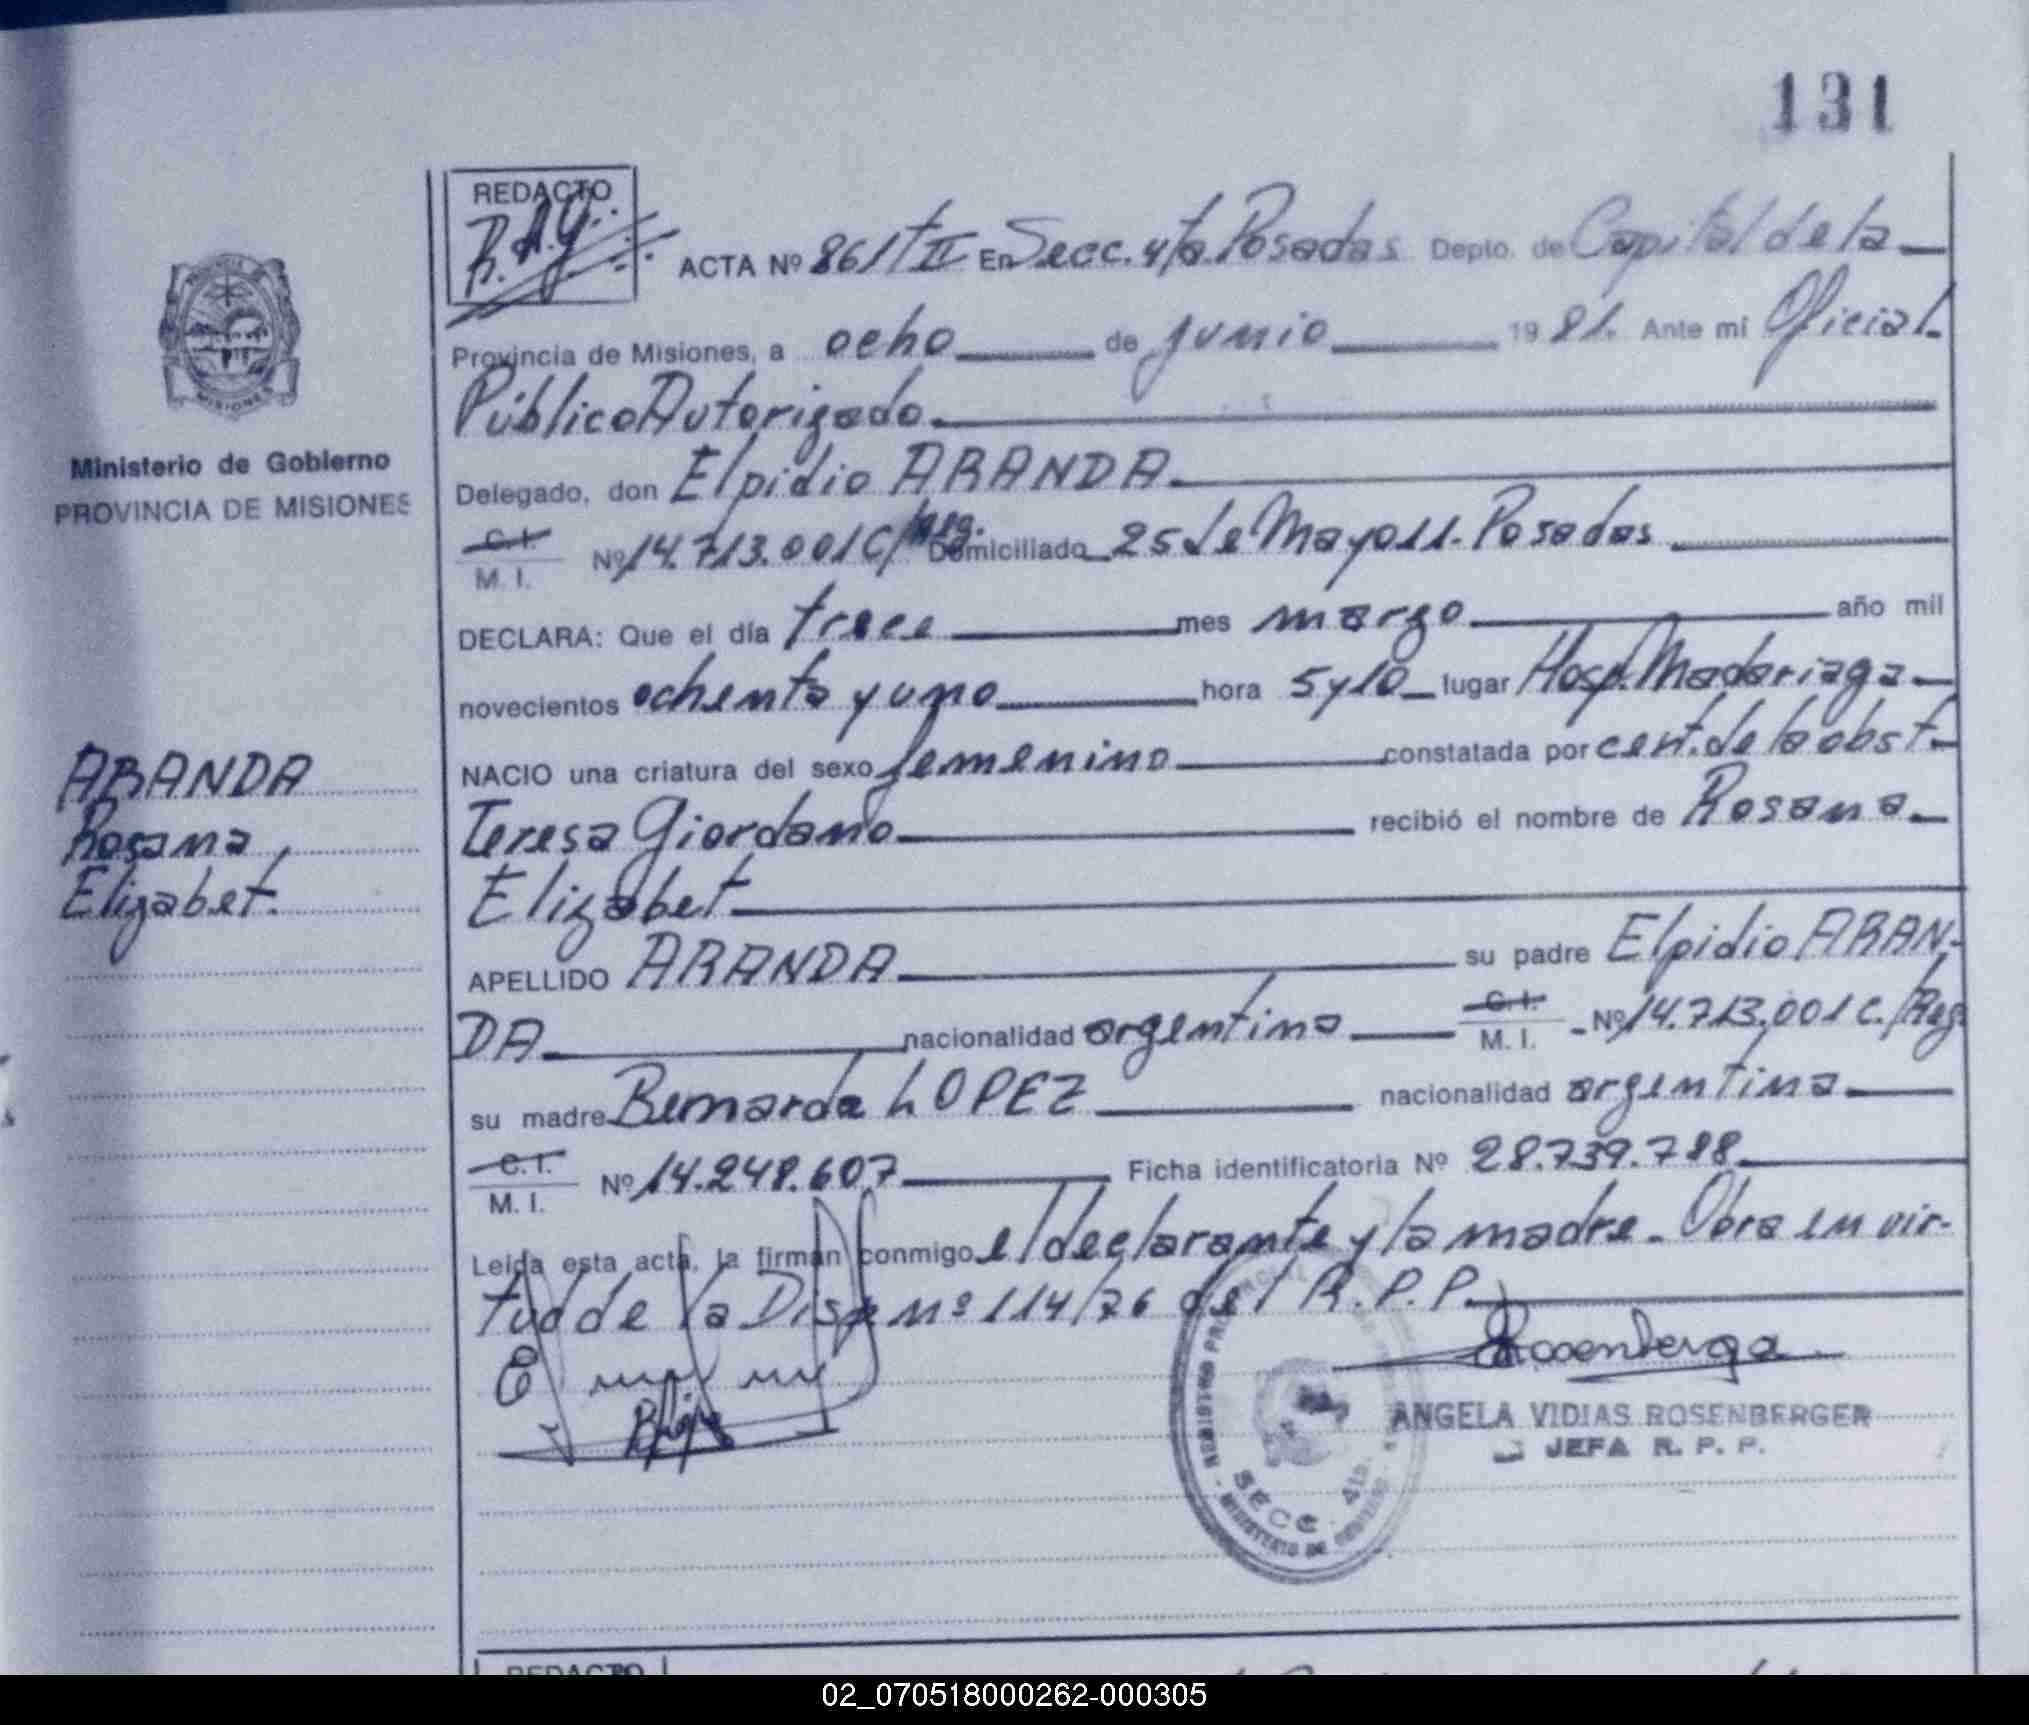 131
REDACTO
R.A.G.
ACTA Nº 861 t II En Secc. 4ta. Posadas Depto. de Capital de la
Provincia de Misiones, a ocho de junio 1981. Ante mí Oficial
Público Autorizado
Ministerio de Gobierno
PROVINCIA DE MISIONES
Delegado, don Elpidio ARANDA
C.I. M. I. Nº 14.713.001 C/Reg. Domiciliado 25 de Mayo 11. Posadas
DECLARA: Que el día trece mes marzo año mil
novecientos ochenta y uno hora 5 y 10 lugar Hosp. Madariaga
NACIO una criatura del sexo femenino constatada por cert. de la obst.
Teresa Giordano recibió el nombre de Rosana
Elizabet
ARANDA
Rosana
Elizabet.
APELLIDO ARANDA su padre Elpidio ARAN-
DA nacionalidad argentina C.I. M. I. Nº 14.713.001 C./Reg.
su madre Bernarda LOPEZ nacionalidad argentina
C.I. M. I. Nº 14.248.607 Ficha identificatoria Nº 28.739.788
Leída esta acta, la firman conmigo el declarante y la madre. Obra en vir-
tud de la Disp. nº 114/76 del R.P.P.
ANGELA VIDIAS ROSENBERGER
JEFA R. P. P.
SECC. 4ta.
MINISTERIO DE GOBIERNO
REDACTO
02_070518000262-000305